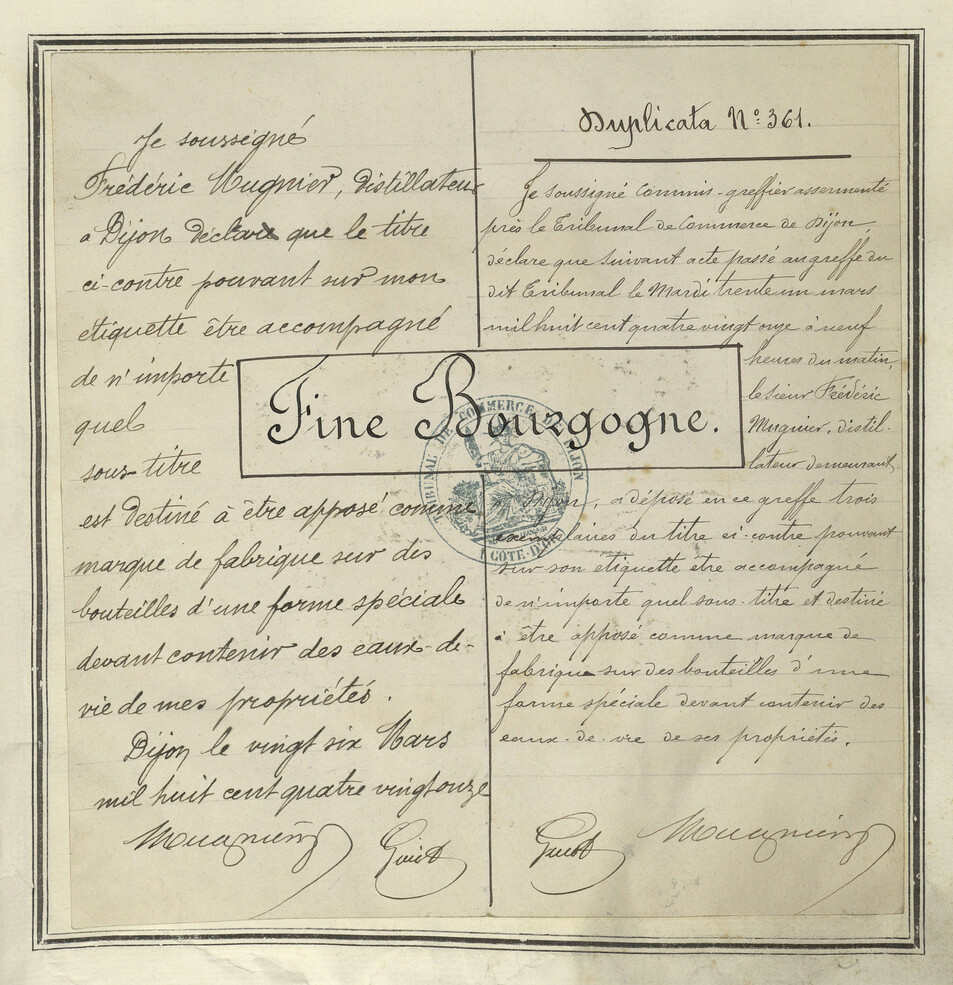 Je soussigné
Frédéric Mugnier, distillateur
à Dijon déclare que le titre
ci-contre pouvant sur mon
étiquette être accompagné
de n'importe
quel
sous-titre
est destiné à être apposé comme
marque de fabrique sur des
bouteilles d'une forme spéciale
devant contenir des eaux-de-
vie de mes propriétés.
Dijon le vingt six Mars
mil huit cent quatre vingt onze
Mugnier
Fine Bourgogne.
TRIBUNAL DE COMMERCE DE DIJON
(CÔTE-D'OR)
Duplicata No: 361.
Je soussigné Commis-greffier assermenté
près le Tribunal de Commerce de Dijon,
déclare que suivant acte passé au greffe du
dit Tribunal le Mardi trente un mars
mil huit cent quatre vingt onze à neuf
heures du matin,
le sieur Frédéric
Mugnier, distil-
lateur demeurant
à Dijon, a déposé en ce greffe trois
exemplaires du titre ci-contre pouvant
sur son étiquette être accompagné
de n'importe quel sous-titre et destiné
à être apposé comme marque de
fabrique sur des bouteilles d'une
forme spéciale devant contenir des
eaux-de-vie de ses propriétés.
Mugnier